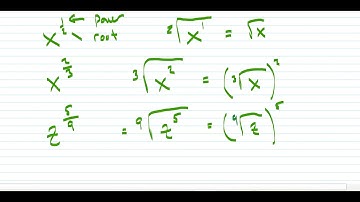 x^{1/2} ← power
root
²√x¹ = √x
x^{2/3} ³√x² = (³√x)²
z^{5/9} = ⁹√z⁵ = (⁹√z)⁵